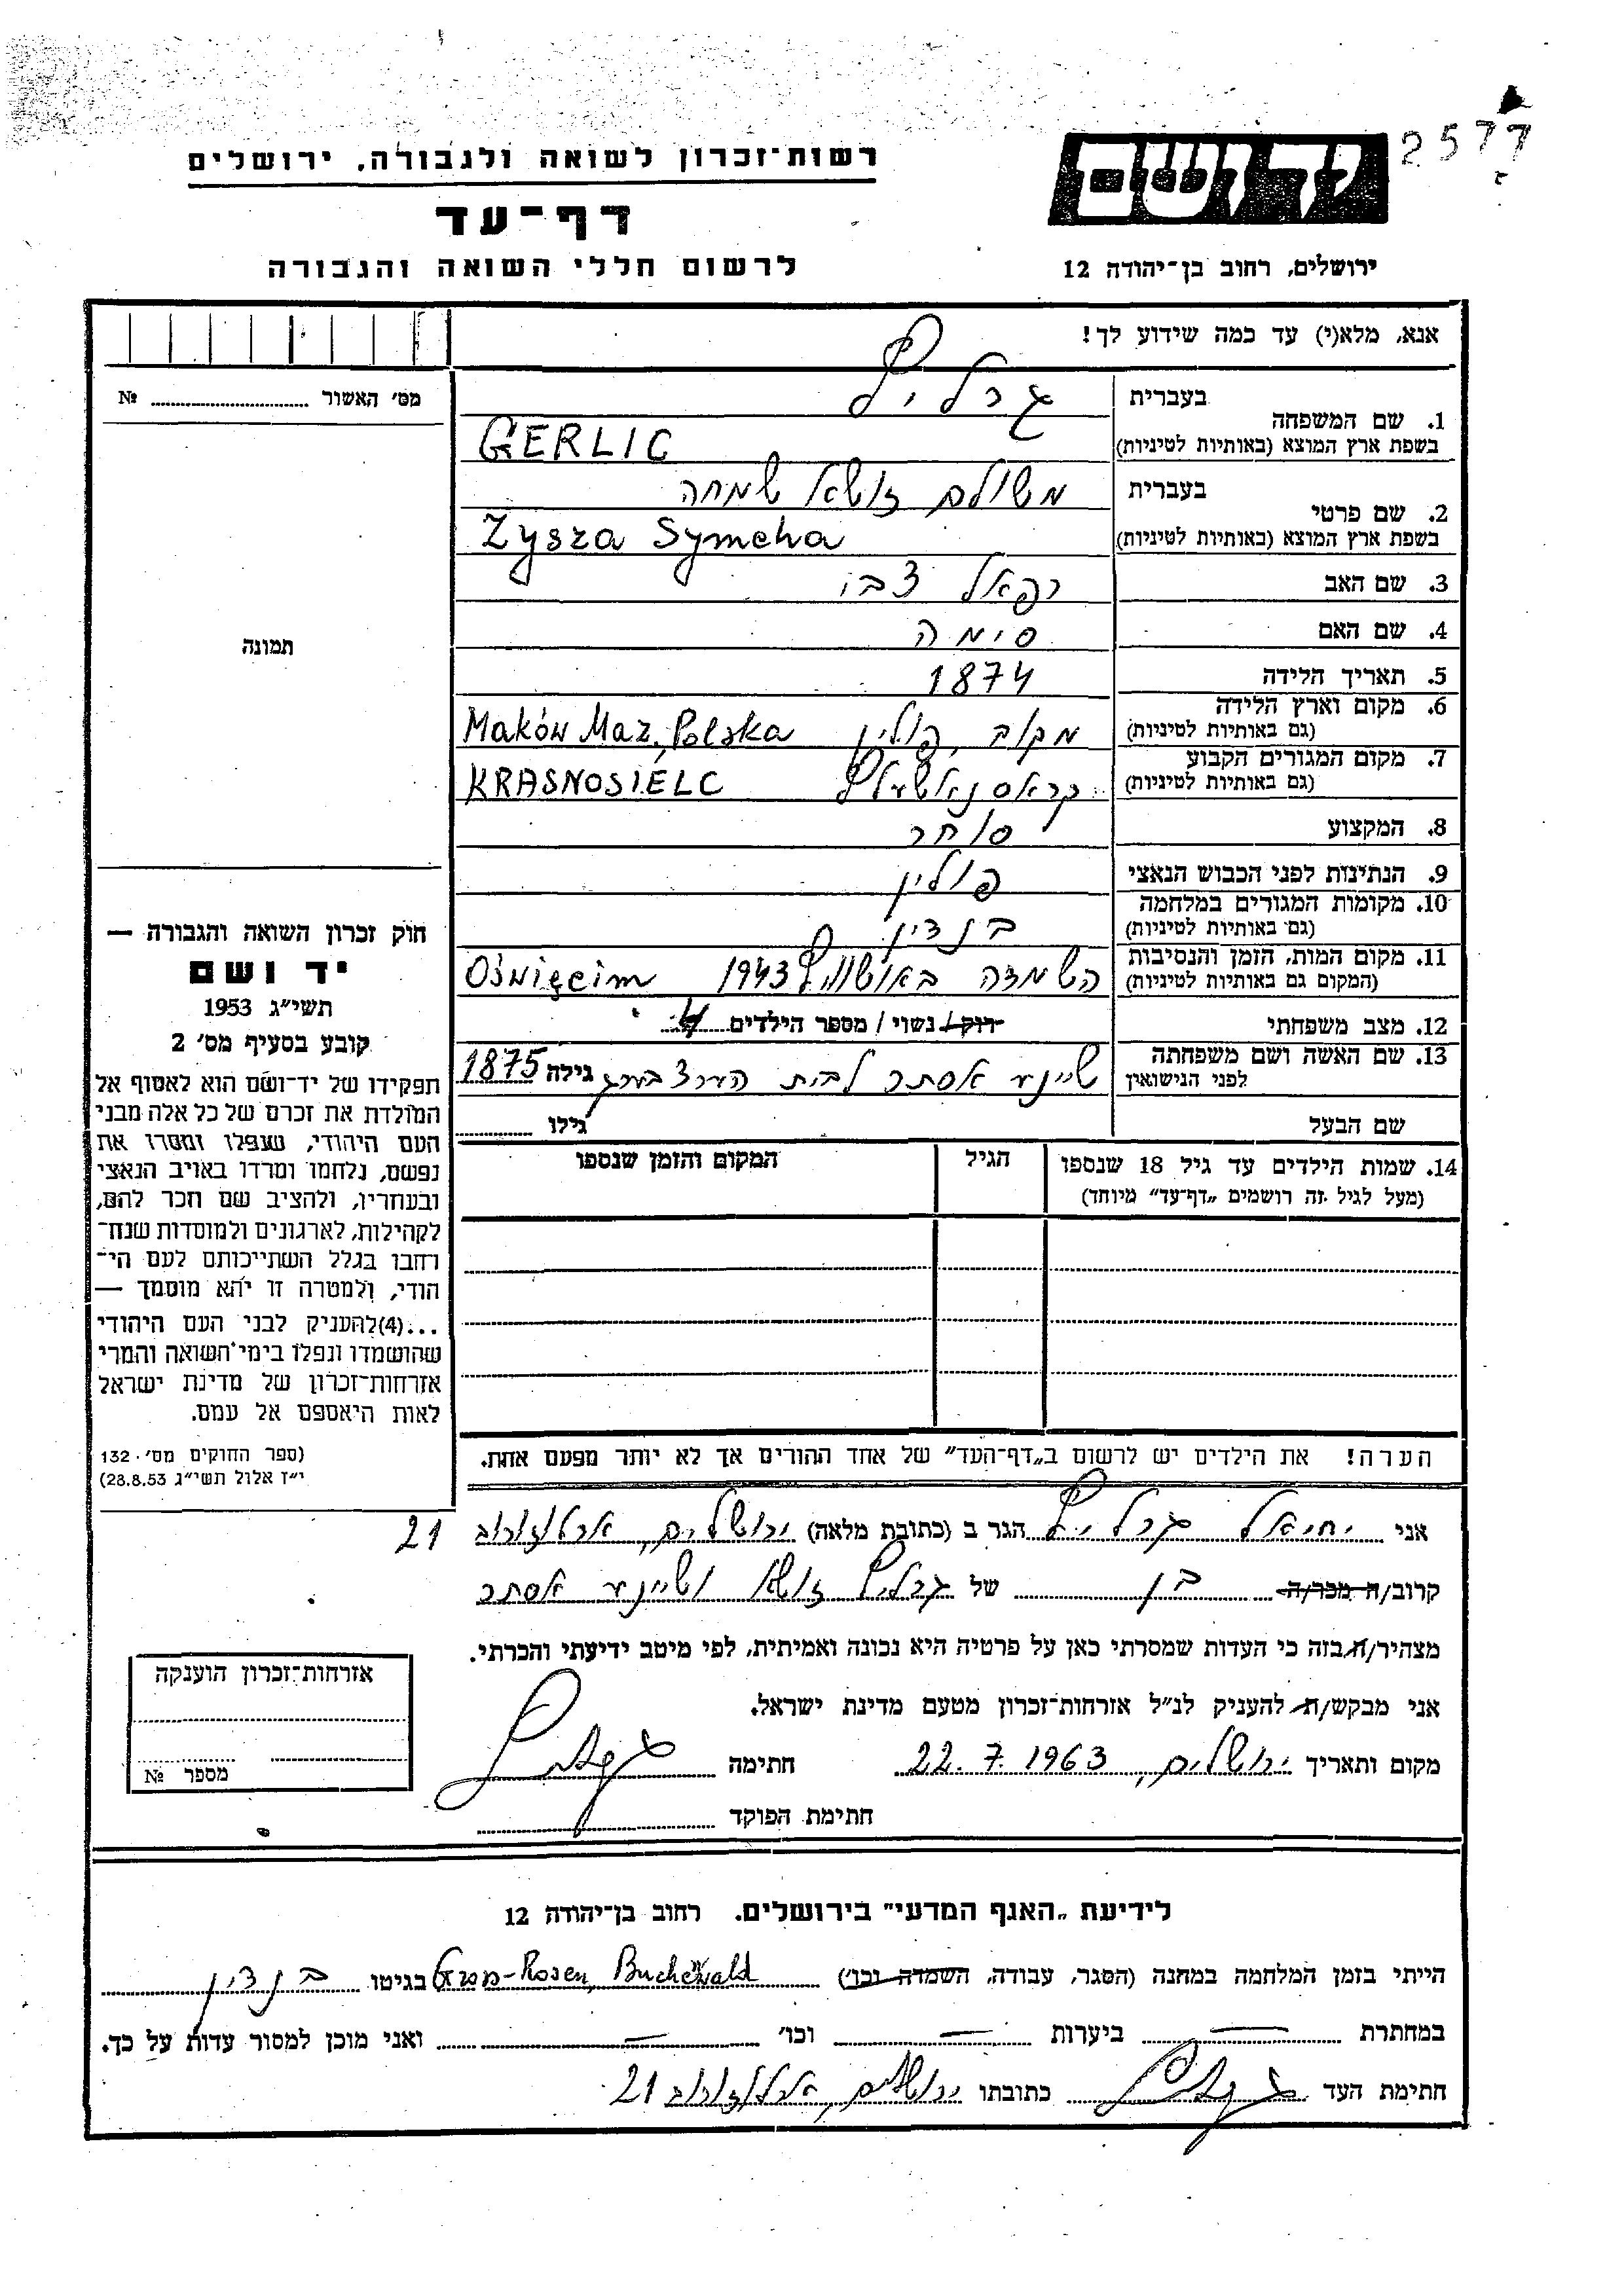 2577
יד ושם
ירושלים, רחוב בן־יהודה 12
רשות־זכרון לשואה ולגבורה, ירושלים
דף־עד
לרשום חללי השואה והגבורה
אנא, מלא(י) עד כמה שידוע לך!
1. שם המשפחה בעברית גרליץ
בשפת ארץ המוצא (באותיות לטיניות) GERLIC
2. שם פרטי בעברית משולם זושא שמחה
בשפת ארץ המוצא (באותיות לטיניות) Zysza Symcha
3. שם האב רפאל צבי
4. שם האם סימה
5. תאריך הלידה 1874
6. מקום וארץ הלידה מקוב, פולין Maków Maz, Polska
(גם באותיות לטיניות)
7. מקום המגורים הקבוע קראסנאשעלץ KRASNOSIELC
(גם באותיות לטיניות)
8. המקצוע סוחר
9. הנתינות לפני הכבוש הנאצי פולין
10. מקומות המגורים במלחמה בנדין
(גם באותיות לטיניות)
11. מקום המות, הזמן והנסיבות השמדה באושוויץ 1943 Oświęcim
(המקום גם באותיות לטיניות)
12. מצב משפחתי רוק/ נשוי / מספר הילדים 4
13. שם האשה ושם משפחתה שיינע אסתר לבית הערצבערג גילה 1875
לפני הנישואין
שם הבעל גילו
14. שמות הילדים עד גיל 18 שנספו הגיל המקום והזמן שנספו
(מעל לגיל זה רושמים „דף־עד” מיוחד)
הערה! את הילדים יש לרשום ב„דף־העד” של אחד ההורים אך לא יותר מפעם אחת.
מס׳ האשור №
תמונה
חוק זכרון השואה והגבורה —
יד ושם
תשי״ג 1953
קובע בסעיף מס׳ 2
תפקידו של יד־ושם הוא לאסוף אל
המולדת את זכרם של כל אלה מבני
העם היהודי, שנפלו ומסרו את
נפשם, נלחמו ומרדו באויב הנאצי
ובעוזריו, ולהציב שם וזכר להם,
לקהילות, לארגונים ולמוסדות שנח־
רחבו בגלל השתייכותם לעם הי־
הודי, ולמטרה זו יהא מוסמך —
...(4)להעניק לבני העם היהודי
שהושמדו ונפלו בימי השואה והמרי
אזרחות־זכרון של מדינת ישראל
לאות היאספם אל עמם.
(ספר החוקים מס׳ 132
י״ז אלול תשי״ג 28.8.53)
אני יחיאל גרליץ הגר ב (כתובת מלאה) ירושלים, ארלוזורוב 21
קרוב/ה מכר/ה בן של גרליץ זושא ושיינע אסתר
מצהיר/ה בזה כי העדות שמסרתי כאן על פרטיה היא נכונה ואמיתית, לפי מיטב ידיעתי והכרתי.
אני מבקש/ת להעניק לנ״ל אזרחות־זכרון מטעם מדינת ישראל.
מקום ותאריך ירושלים, 22.7.1963 חתימה
חתימת הפוקד
אזרחות־זכרון הוענקה
מספר №
לידיעת „האגף המדעי” בירושלים. רחוב בן־יהודה 12
הייתי בזמן המלחמה במחנה (הסגר, עבודה, השמדה וכו׳) Gross-Rosen, Buchenwald בגיטו בנדין
במחתרת — ביערות — וכו׳ — ואני מוכן למסור עדות על כך.
חתימת העד כתובתו ירושלים, ארלוזורוב 21